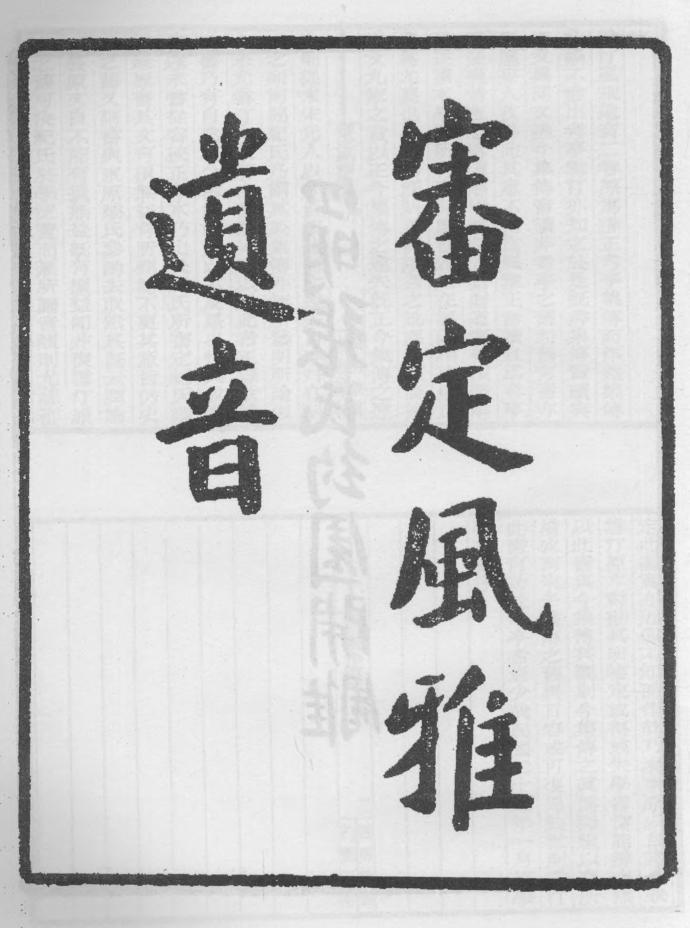 審定風雅
遺音